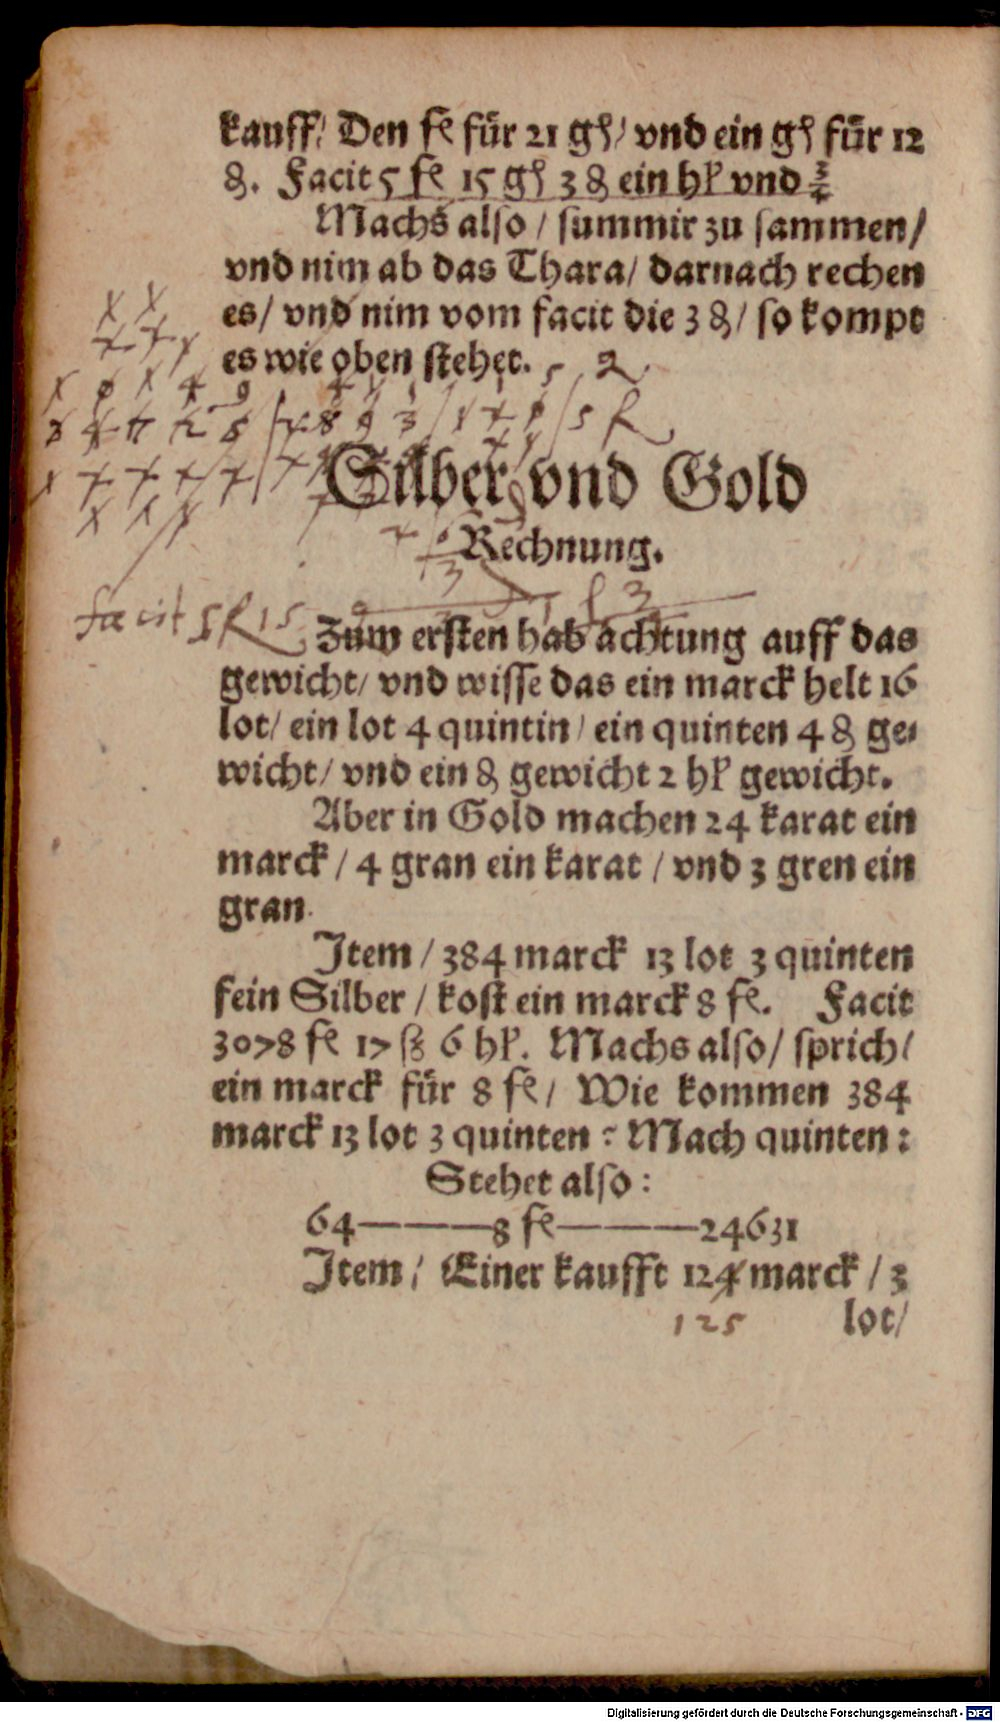 kauff/ Den fl für 21 gſ/ vnd ein gſ für 12
₰. Facit 5 fl 15 gſ 3 ₰ ein hl vnd ¾
Machs also / summir zu sammen/
vnd nim ab das Thara/ darnach rechen
es/ vnd nim vom facit die 3 ₰/ so kompt
es wie oben stehet.
Silber vnd Gold
Rechnung.
facit 5 fl 15
Zum ersten hab achtung auff das
gewicht/ vnd wisse das ein marck helt 16
lot/ ein lot 4 quintin/ ein quinten 4 ₰ ge-
wicht/ vnd ein ₰ gewicht 2 hl gewicht.
Aber in Gold machen 24 karat ein
marck / 4 gran ein karat / vnd 3 gren ein
gran.
Item / 384 marck 13 lot 3 quinten
fein Silber / kost ein marck 8 fl. Facit
3078 fl 17 ß 6 hl. Machs also/ sprich/
ein marck für 8 fl/ Wie kommen 384
marck 13 lot 3 quinten : Mach quinten :
Stehet also :
64———8 fl———24631
Item / Einer kaufft 124 marck / 3
125 lot/
Digitalisierung gefördert durch die Deutsche Forschungsgemeinschaft - DFG